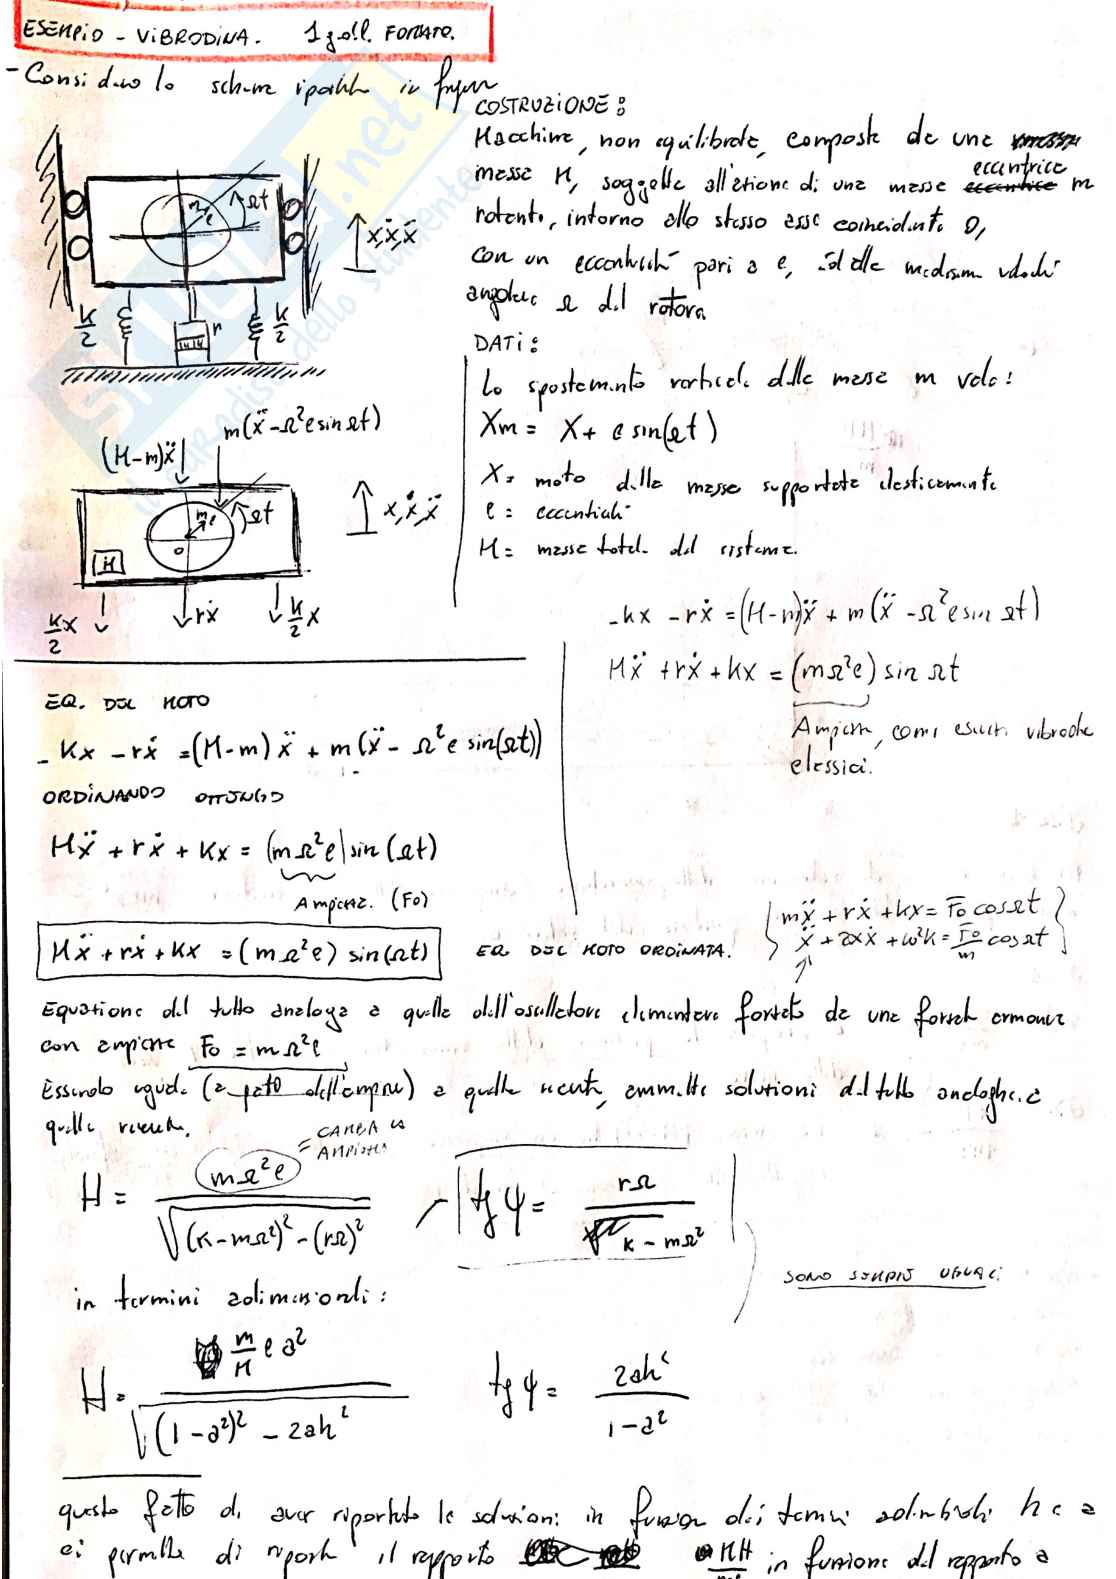 ESEMPIO - VIBRODINA. 1 g.d.l. FORZATO.
- Considero lo schema riportato in figura
COSTRUZIONE:
Macchina, non equilibrata, composta da una
massa M, soggetta all'azione di una massa eccentrica m
rotante, intorno allo stesso asse coincidente O,
con un eccentricità pari a e, ed alla medesima velocità
angolare Ω del rotore
DATI:
Lo spostamento verticale della massa m vale:
Xm = X + e sin(Ωt)
X = moto della massa supportata elasticamente
e = eccentricità
M = massa totale del sistema.
m e Ωt
x, ẋ, ẍ
k/2 r k/2
m(ẍ - Ω²e sin Ωt)
(M-m)ẍ
m e Ωt
O
M
x, ẋ, ẍ
k/2 x rẋ k/2 x
-kx - rẋ = (M-m)ẍ + m(ẍ - Ω²e sin Ωt)
Mẍ + rẋ + kx = (mΩ²e) sin Ωt
Ampiezza, come esercizi vibrodine
classici.
EQ. DEL MOTO
- Kx - rẋ = (M-m)ẍ + m(ẍ - Ω²e sin(Ωt))
ORDINANDO OTTENGO
Mẍ + rẋ + Kx = (mΩ²e) sin(Ωt)
Ampiezza. (Fo)
Mẍ + rẋ + Kx = (mΩ²e) sin(Ωt)
EQ. DEL MOTO ORDINATA.
mẍ + rẋ + kx = Fo cosΩt
ẍ + 2αẋ + ω²k = Fo/m cosΩt
Equazione del tutto analoga a quella dell'oscillatore elementare forzato da una forzante armonica
con ampiezza Fo = mΩ²e
Essendo uguale (a patto dell'ampiezza) a quella, ammette soluzioni del tutto analoghe a
quelle
= CAMBIA LA
AMPIEZZA
H = mΩ²e / √((k-mΩ²)² - (rΩ)²)
tg φ = rΩ / k - mΩ²
SONO SEMPRE UGUALI
in termini adimensionali:
H = m/M e a² / √((1-a²)² - 2ah²
tg φ = 2ah / 1-a²
questo fatto di aver riportato le soluzioni in funzione dei termini adimensionali h e a
ci permette di riportare il rapporto MH in funzione del rapporto a